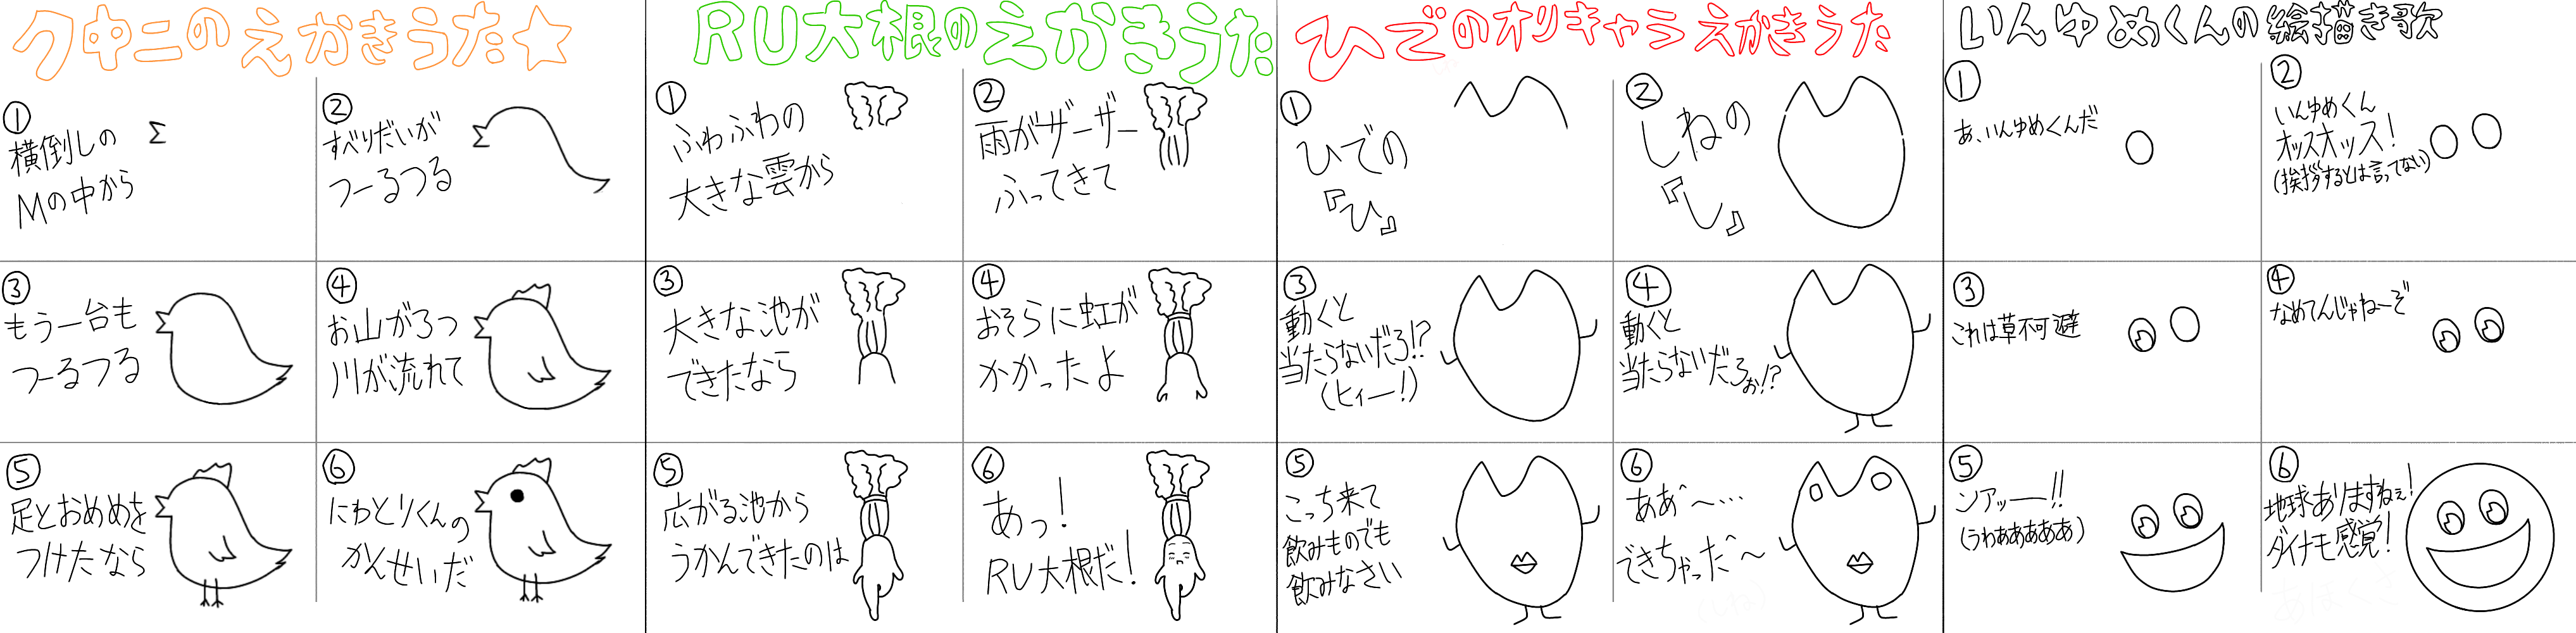 クゆニのえかきうた☆
①
横倒しの
Mの中から
②
すべりだいが
つーるつる
③
もう一台も
つーるつる
④
お山がろっ
川が流れて
⑤
足とおめめを
つけたなら
⑥
にわとりくんの
かんせいだ
RU大根のえかきうた
①
ふわふわの
大きな雲から
②
雨がザーザー
ふってきて
③
大きな池が
できたなら
④
おそらに虹が
かかったよ
⑤
広がる池から
うかんできたのは
⑥
あっ!
RU大根だ!
ひでのオリキャラえかきうた
①
ひでの
『ひ』
②
しねの
『し』
③
動くと
当たらないだろ!?
(ヒィー!)
④
動くと
当たらないだろぉ!?
⑤
こっち来て
飲みものでも
飲みなさい
⑥
ああ^~…
できちゃった^~
いんゆめくんの絵描き歌
①
あ、いんゆめくんだ
②
いんゆめくん
オッスオッス!
(挨拶するとは言ってない)
③
これは草不可避
④
なめてんじゃねーぞ
⑤
ンアッー!!
(うわあああああ)
⑥
地球ありますねぇ!
ダイナモ感覚!